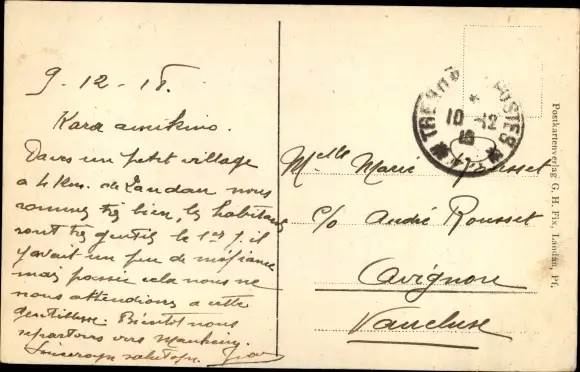 9-12-18.
Kara amikino.
Dans un petit village
à 4 Km. de Landau nous
sommes très bien, les habitants
sont très gentils le 1er j. il
y avait un peu de méfiance
mais passée cela nous ne
nous attendions à cette
gentillesse. Bientôt nous
repartons vers Manheim.
Sinceran saluton.
TRESOR POSTES
10 -12
18
Melle Marie Rousset
c/o André Rousset
Avignon
Vaucluse
Postkartenverlag G. H. Fix, Landau, Pf.